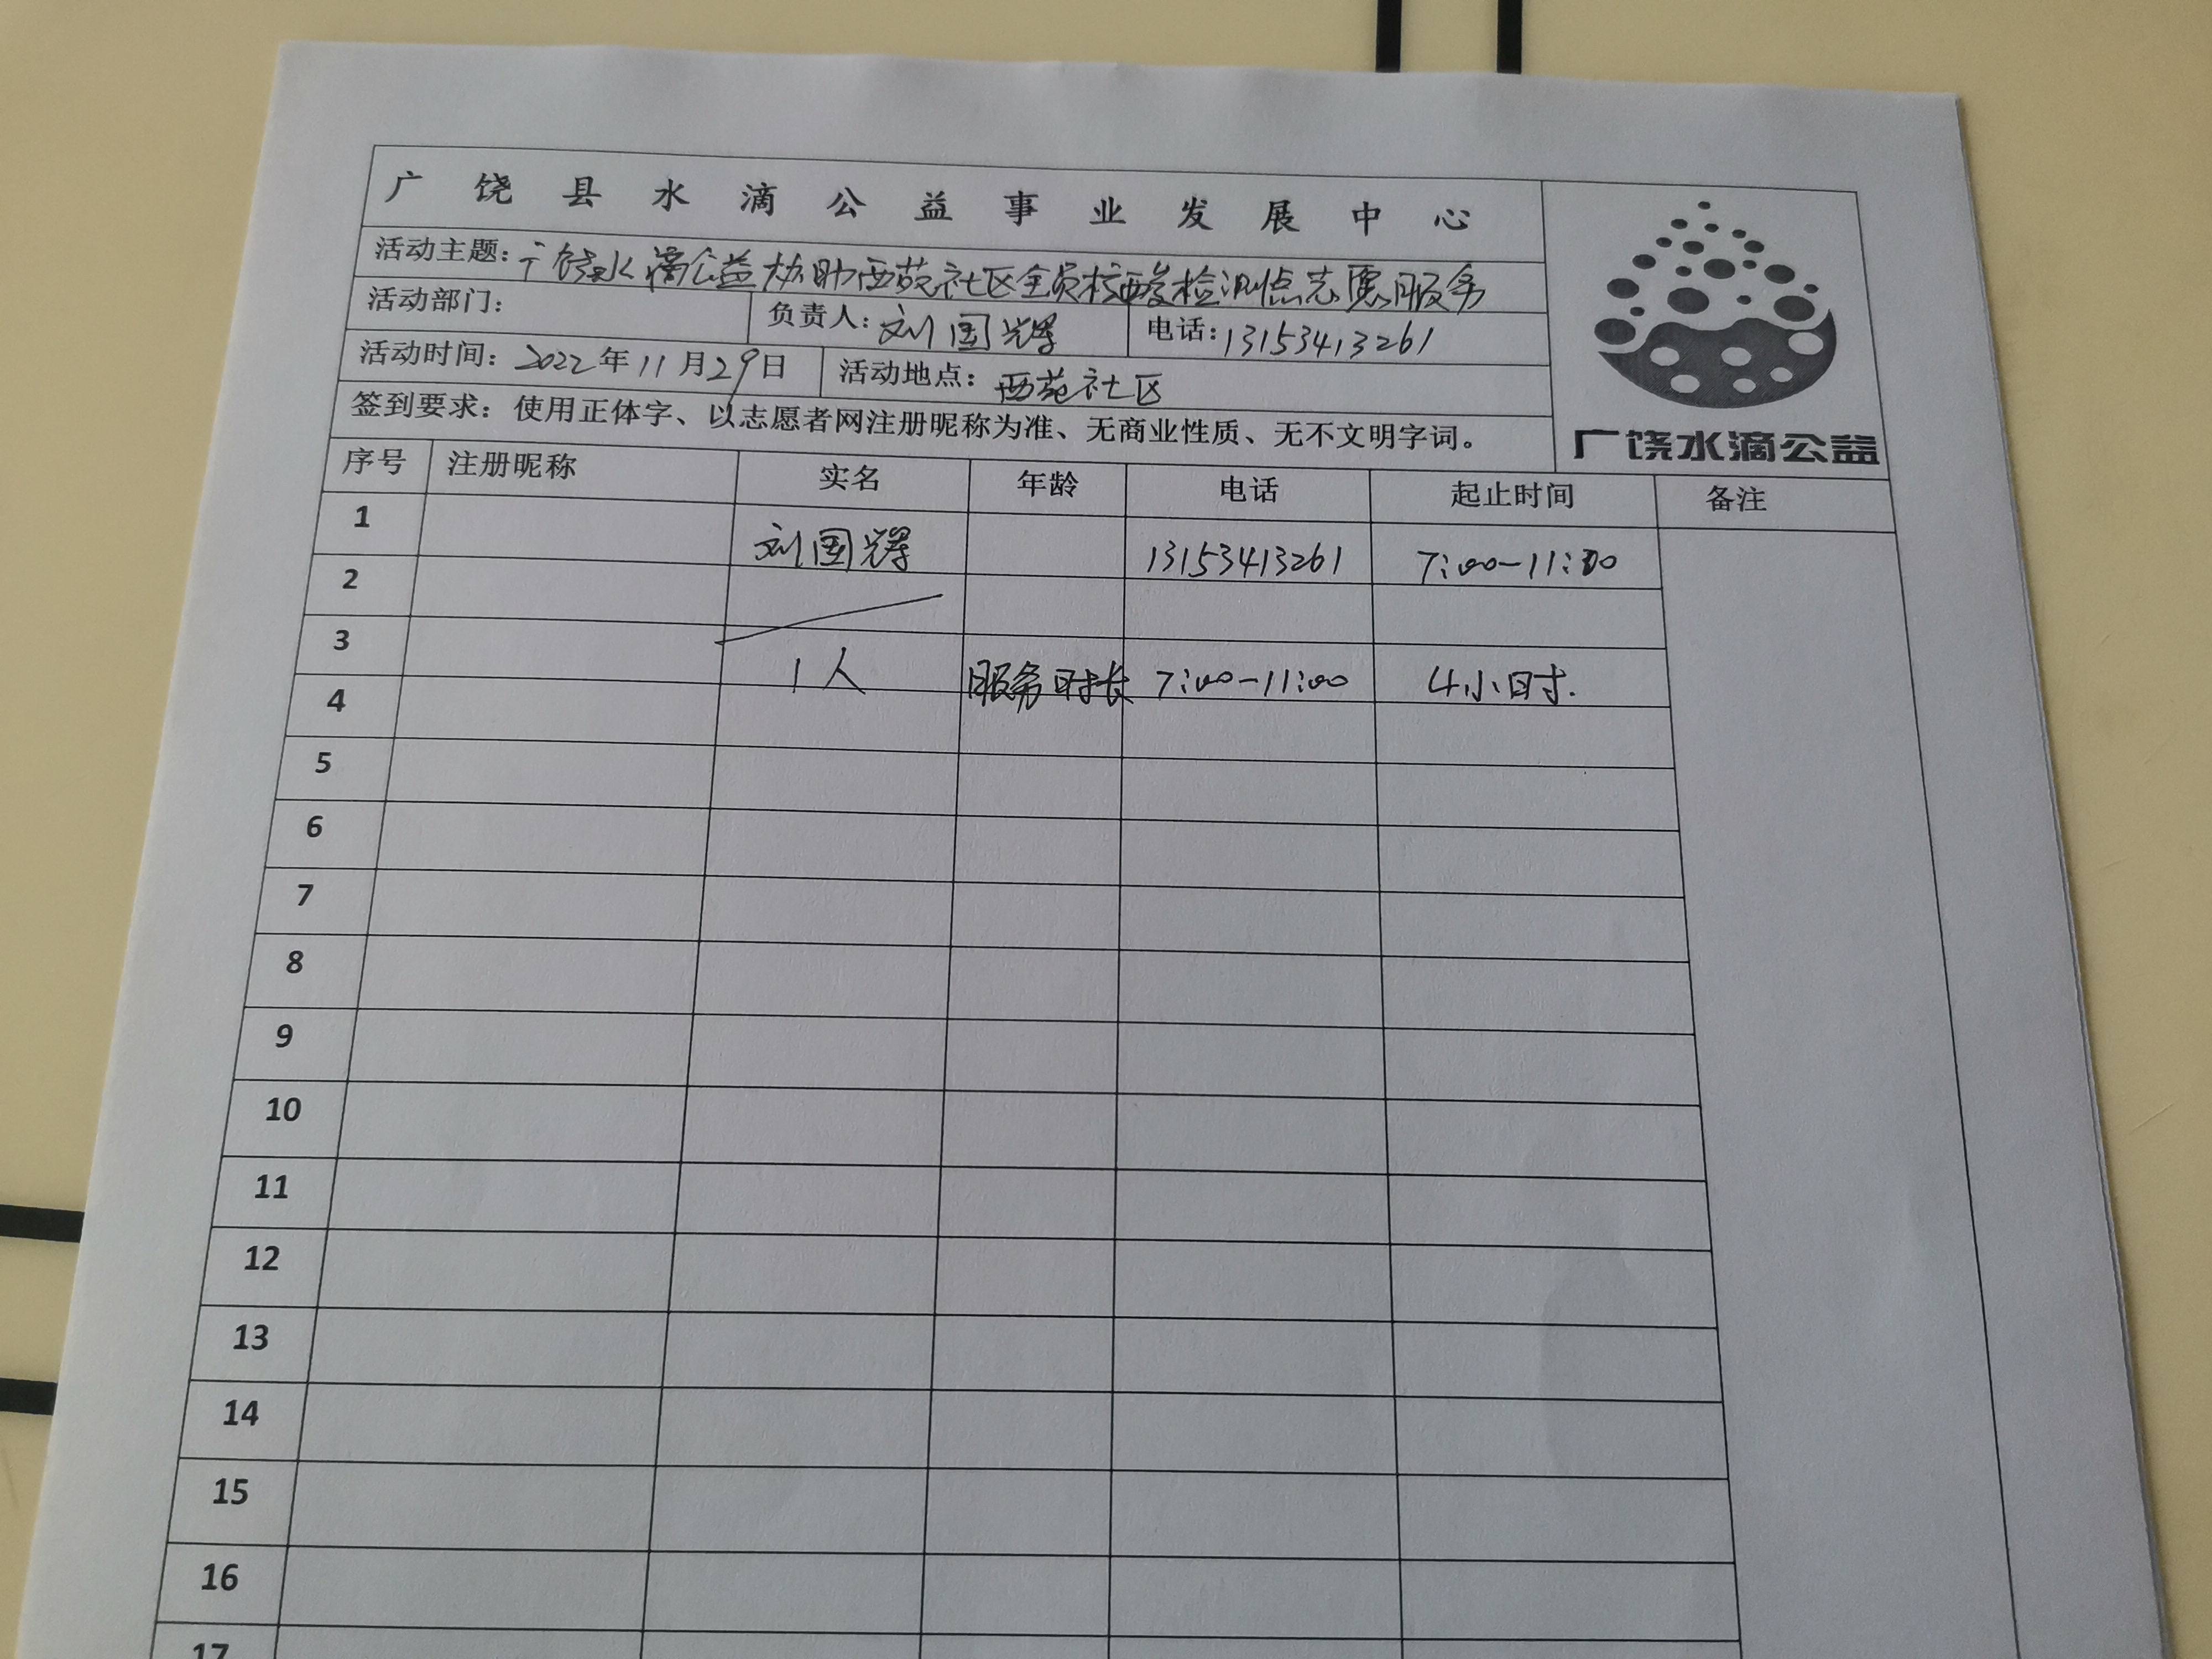 广饶县水滴公益事业发展中心
活动主题：广饶水滴公益协助西苑社区全员核酸检测点志愿服务
活动部门： 负责人：刘国辉 电话：13153413261
活动时间：2022年11月29日 活动地点：西苑社区
签到要求：使用正体字、以志愿者网注册昵称为准、无商业性质、无不文明字词。
广饶水滴公益
序号 注册昵称 实名 年龄 电话 起止时间 备注
1 刘国辉 13153413261 7:00-11:00
2
3 1人 服务时长 7:00-11:00 4小时.
4
5
6
7
8
9
10
11
12
13
14
15
16
17